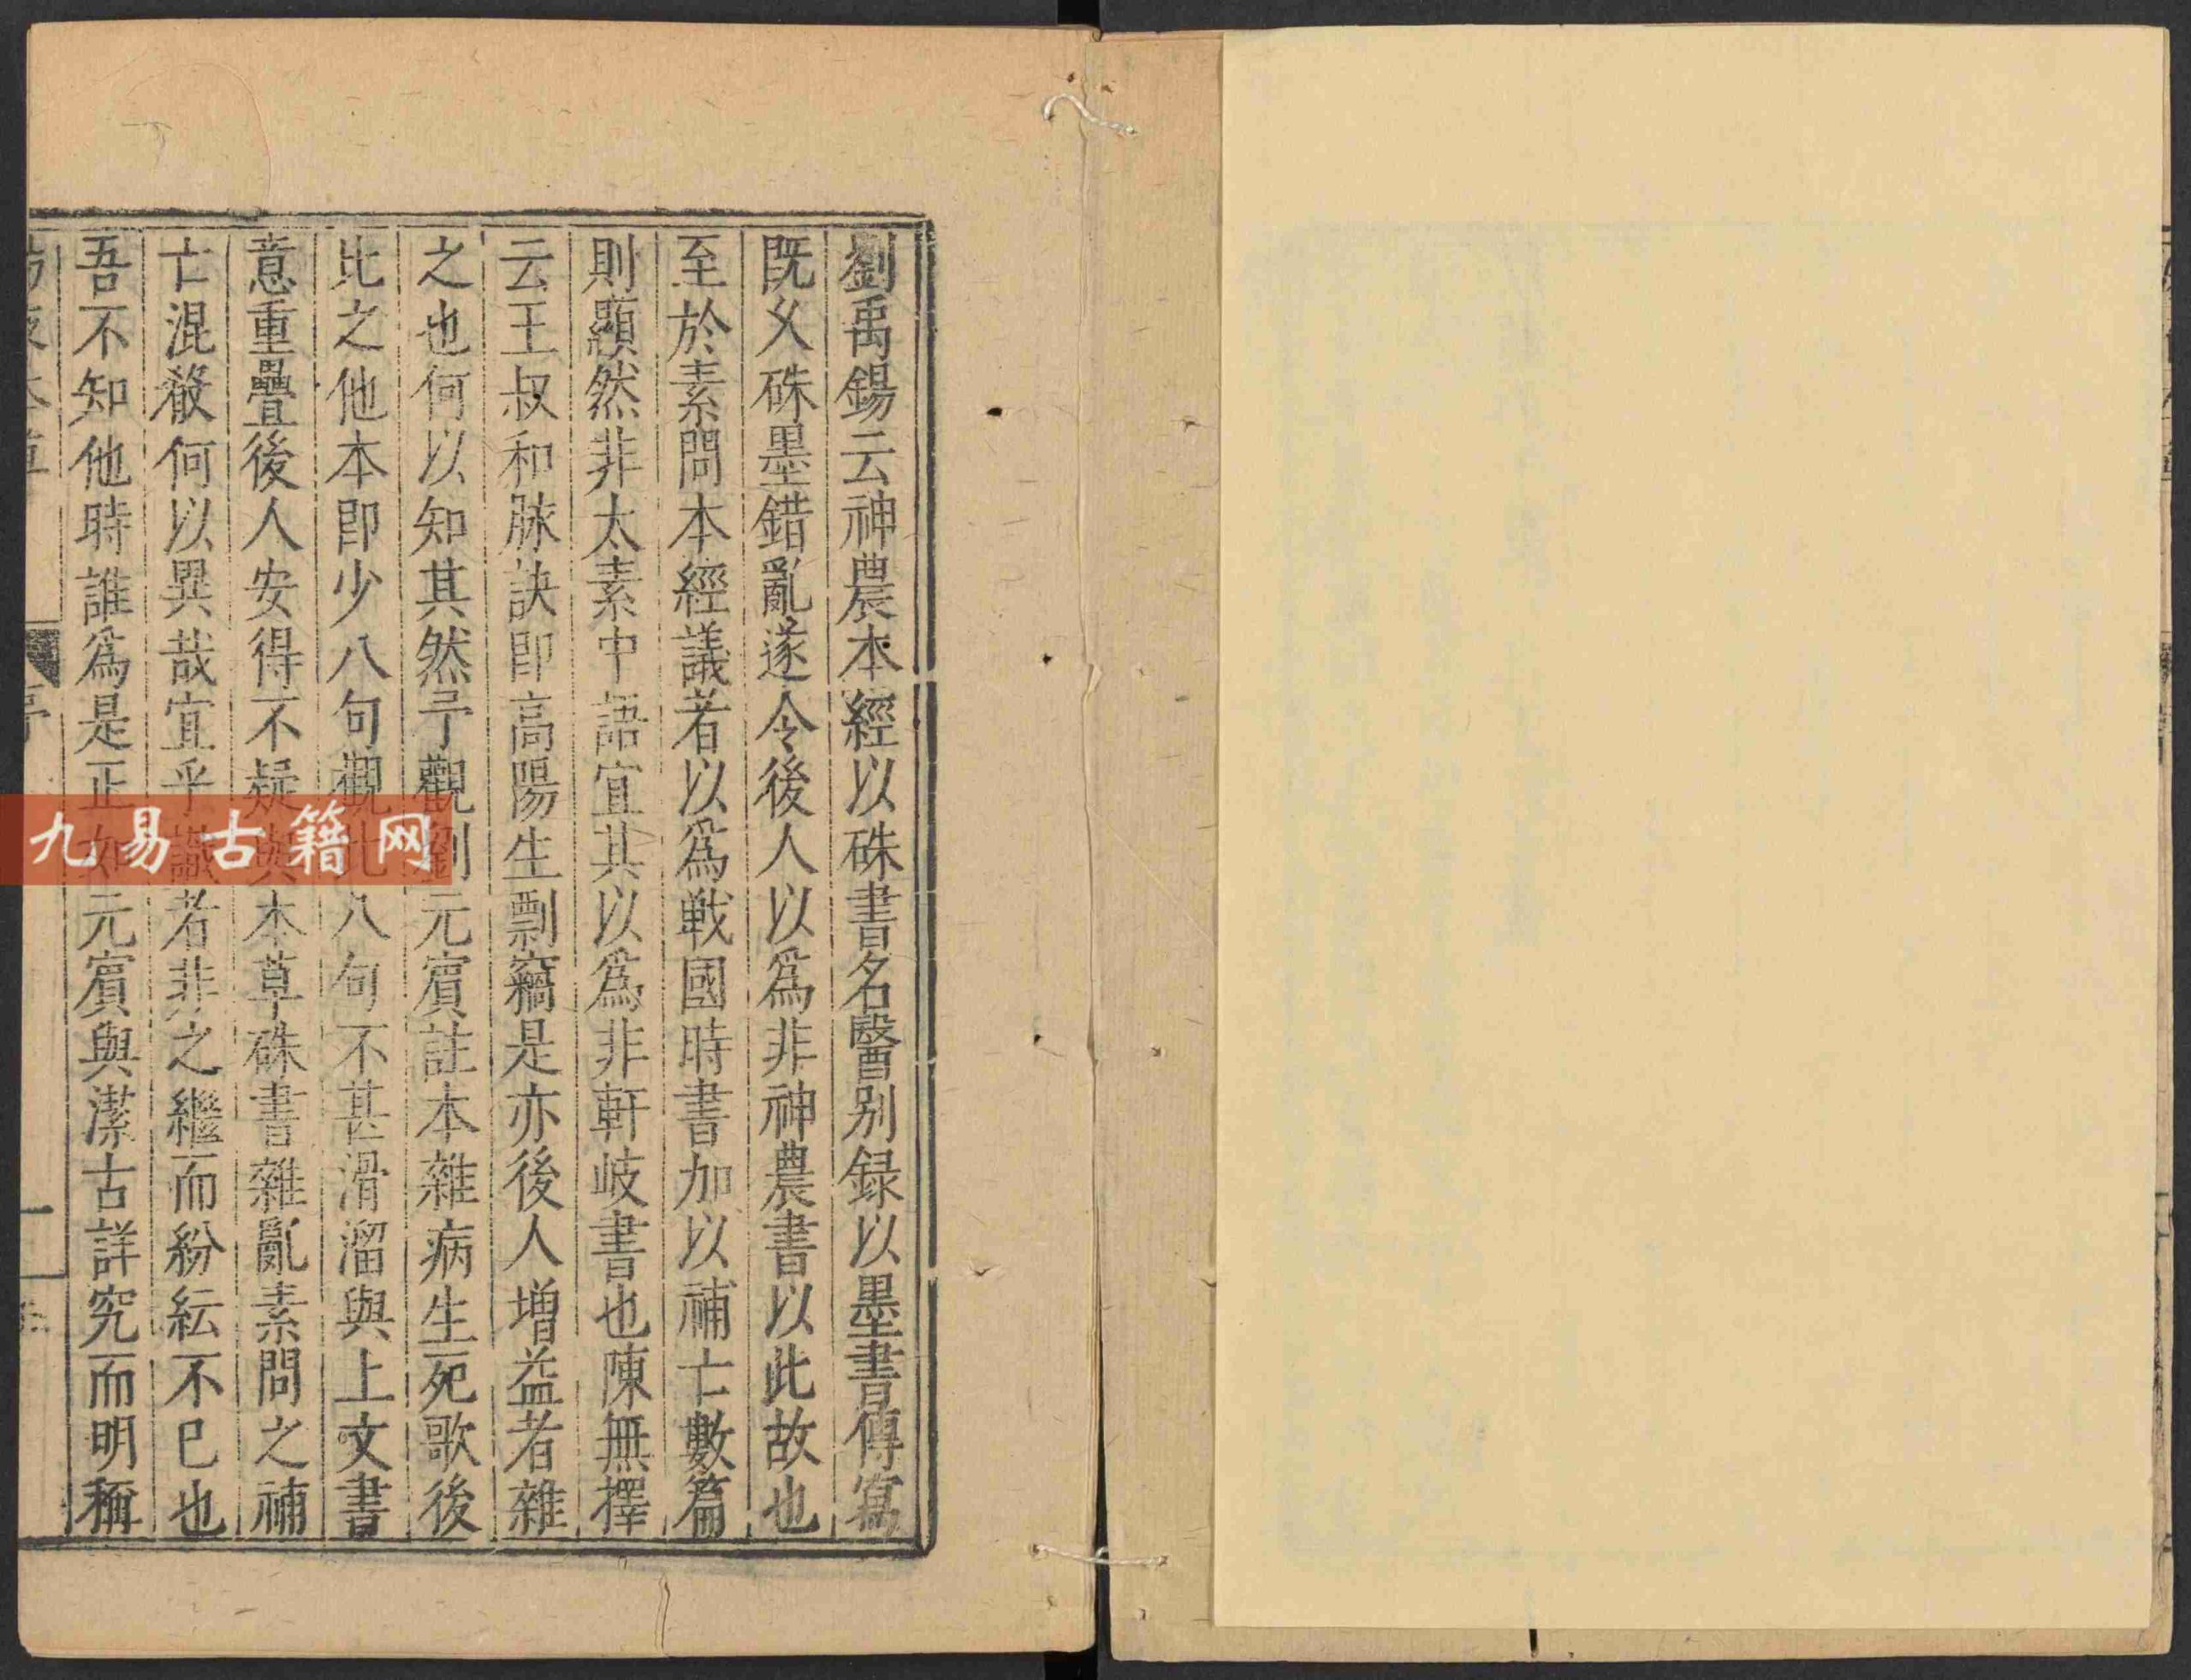 劉禹錫云神農本經以硃書名醫别録以墨書傳寫
既乆硃墨錯亂遂令後人以爲非神農書以此故也
至於素問本經議者以爲戰國時書加以補亡數篇
則顯然非太素中語宜其以爲非軒岐書也陳無擇
云王叔和脉訣即高陽生剽竊是亦後人增益者雜
之也何以知其然予觀劉元賔註本雜病生死歌後
比之他本即少八句觀此八句不甚滑溜與上文書
意重疊後人安得不疑與本草硃書雜亂素問之補
亡混殽何以異哉宜乎識者非之繼而紛紜不已也
吾不知他時誰爲是正如元賔與潔古詳究而明稱
序
一
九易古籍网